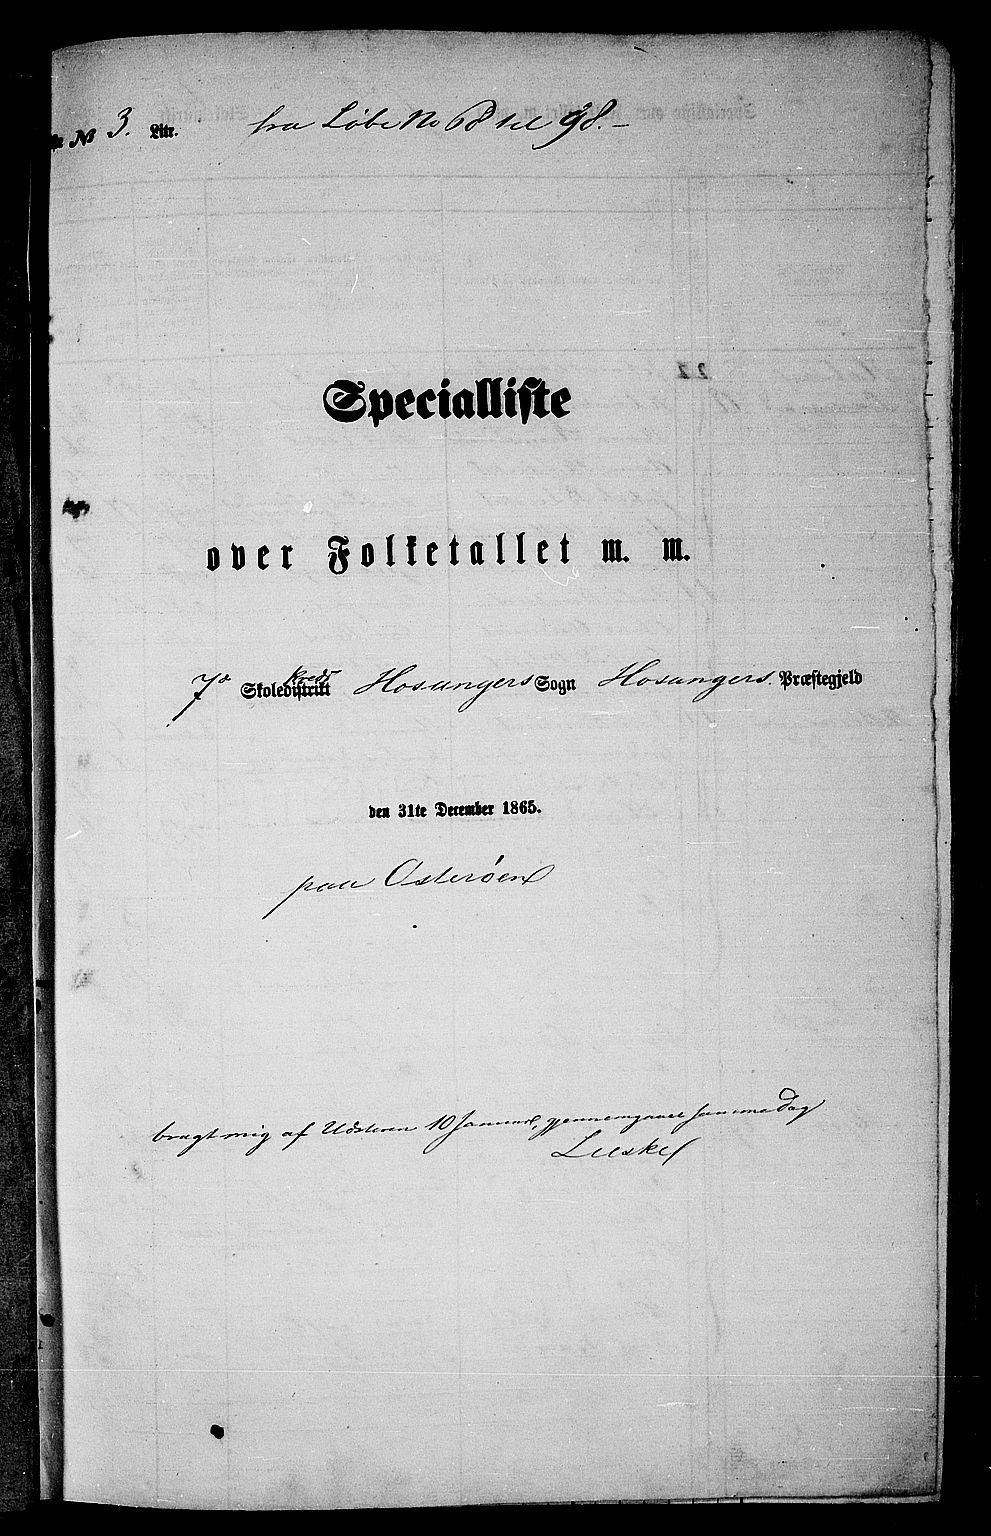 № 3. Litr. fra Løbe No 68 til 98.–
Specialliste
over Folketallet m. m.
7de Skoledistrikt Kreds Hosangers Sogn Hosangers Præstegjeld
den 31te December 1865.
paa Osterøen
bragt mig af Udsteren 10 Januar, gjennemgaaet samme Dag